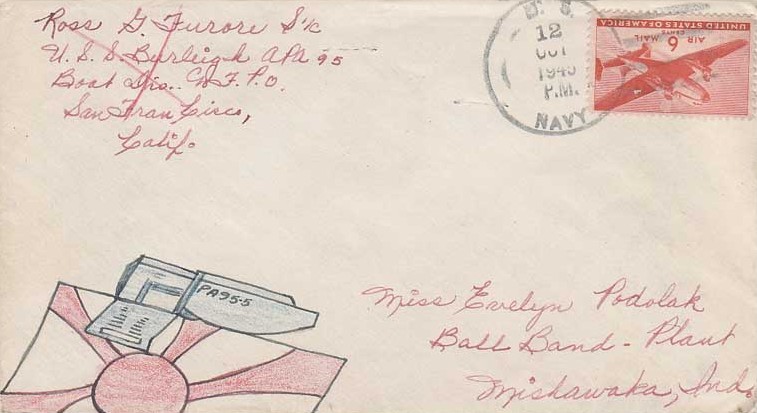 Ross G. Furore S 1/c
U. S. S. Burleigh APA 95
Boat Div. C/o F. P. O.
San Francisco,
Calif.
U. S.
12
OCT
1945
P.M.
NAVY
UNITED STATES OF AMERICA
AIR MAIL
6 CENTS
PA95-5
Miss Evelyn Podolak
Ball Band - Plant
Mishawaka, Ind.